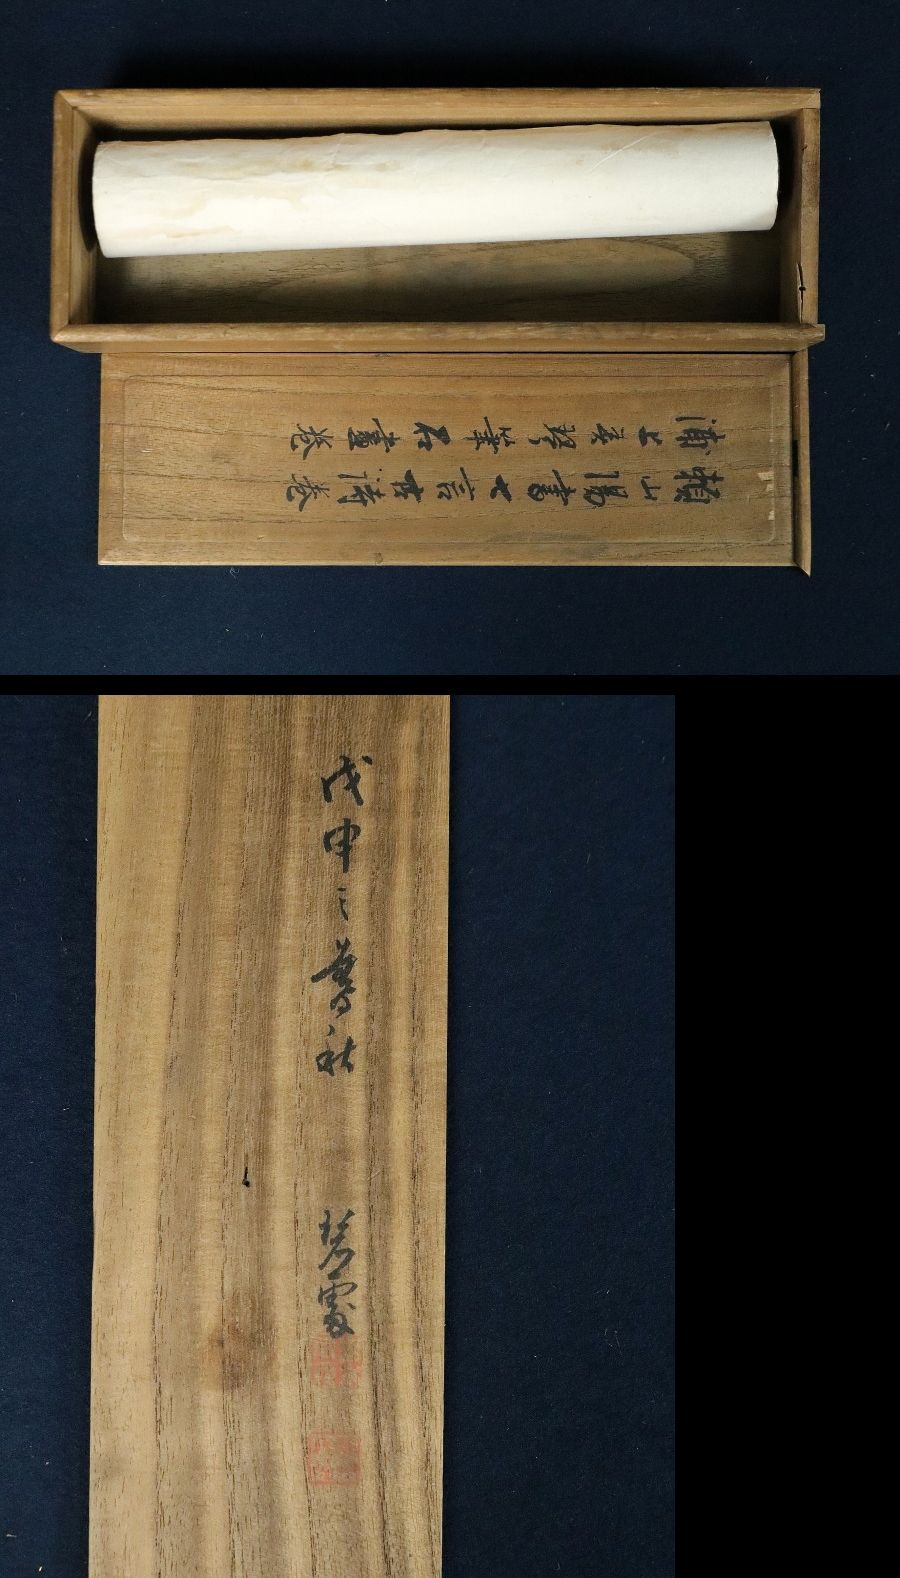 頼山陽書七言古詩卷
浦上春琴筆畫卷
戊申之暮秋
碧